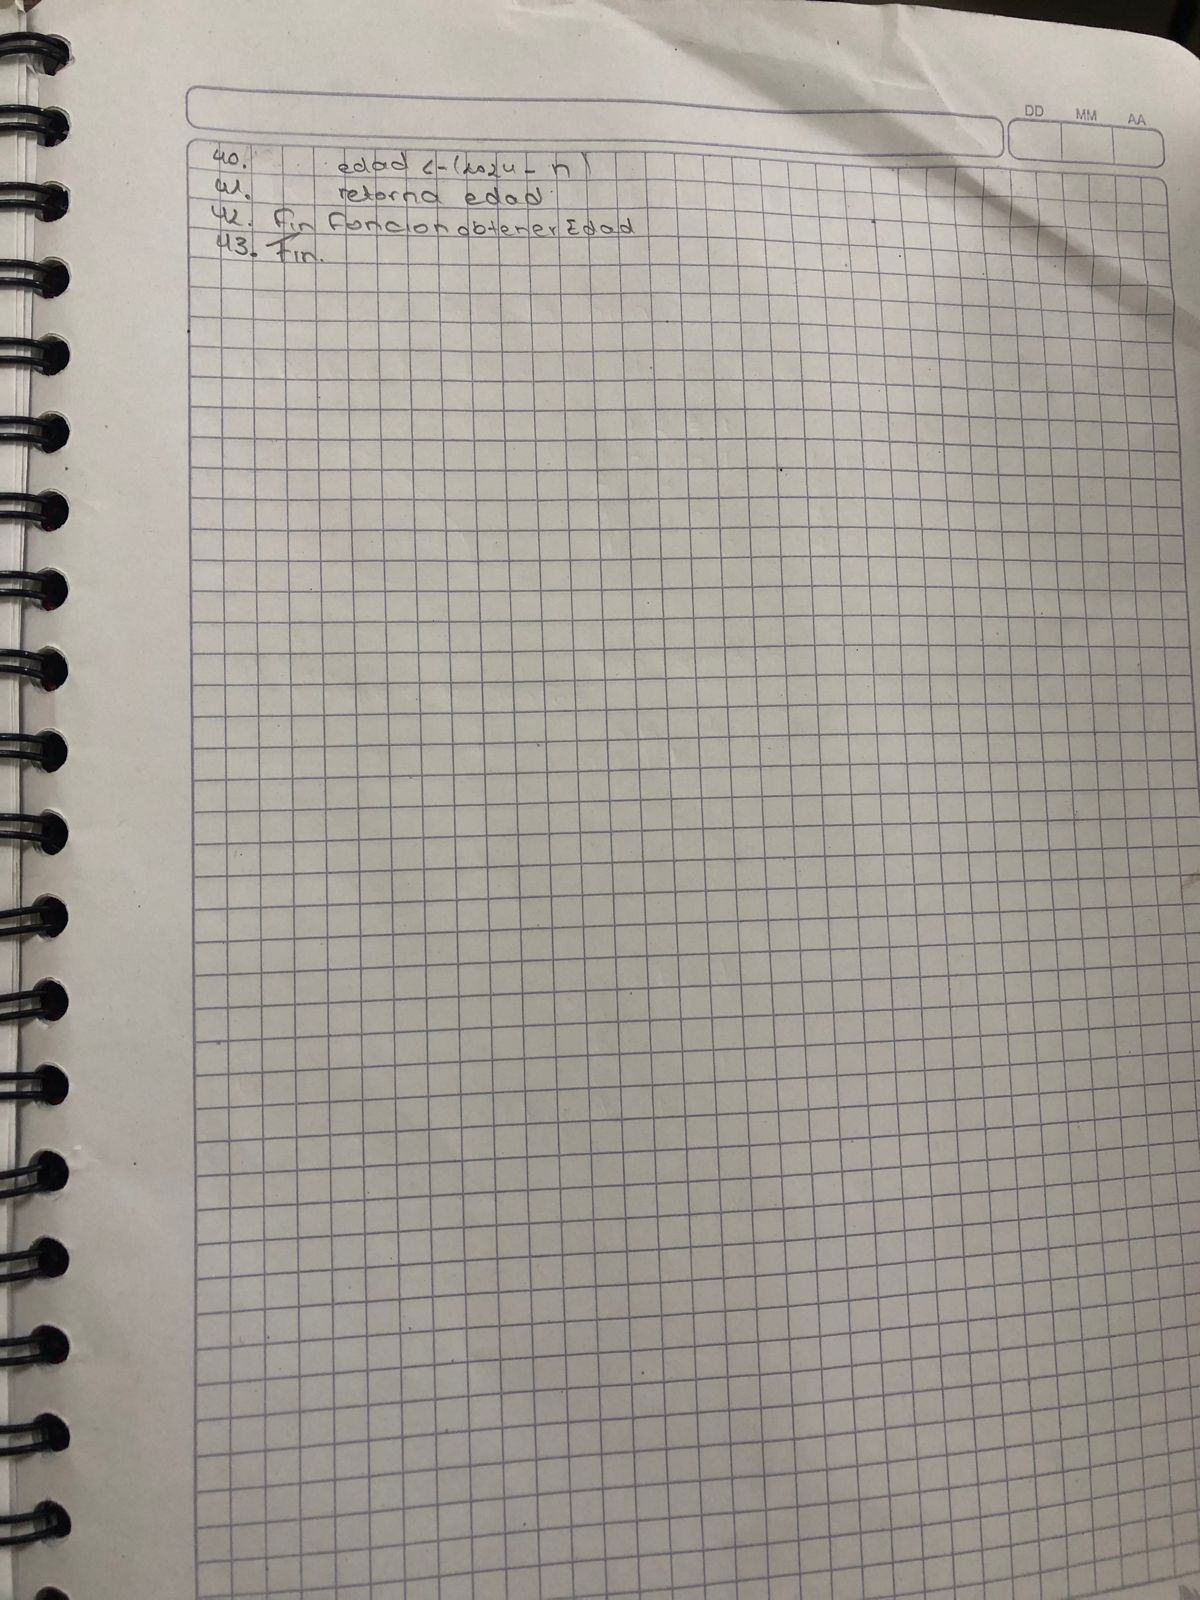 DD MM AA
40. edad <- (2024 - n)
41. retorna edad
42. Fin Funcion obtenerEdad
43. Fin.